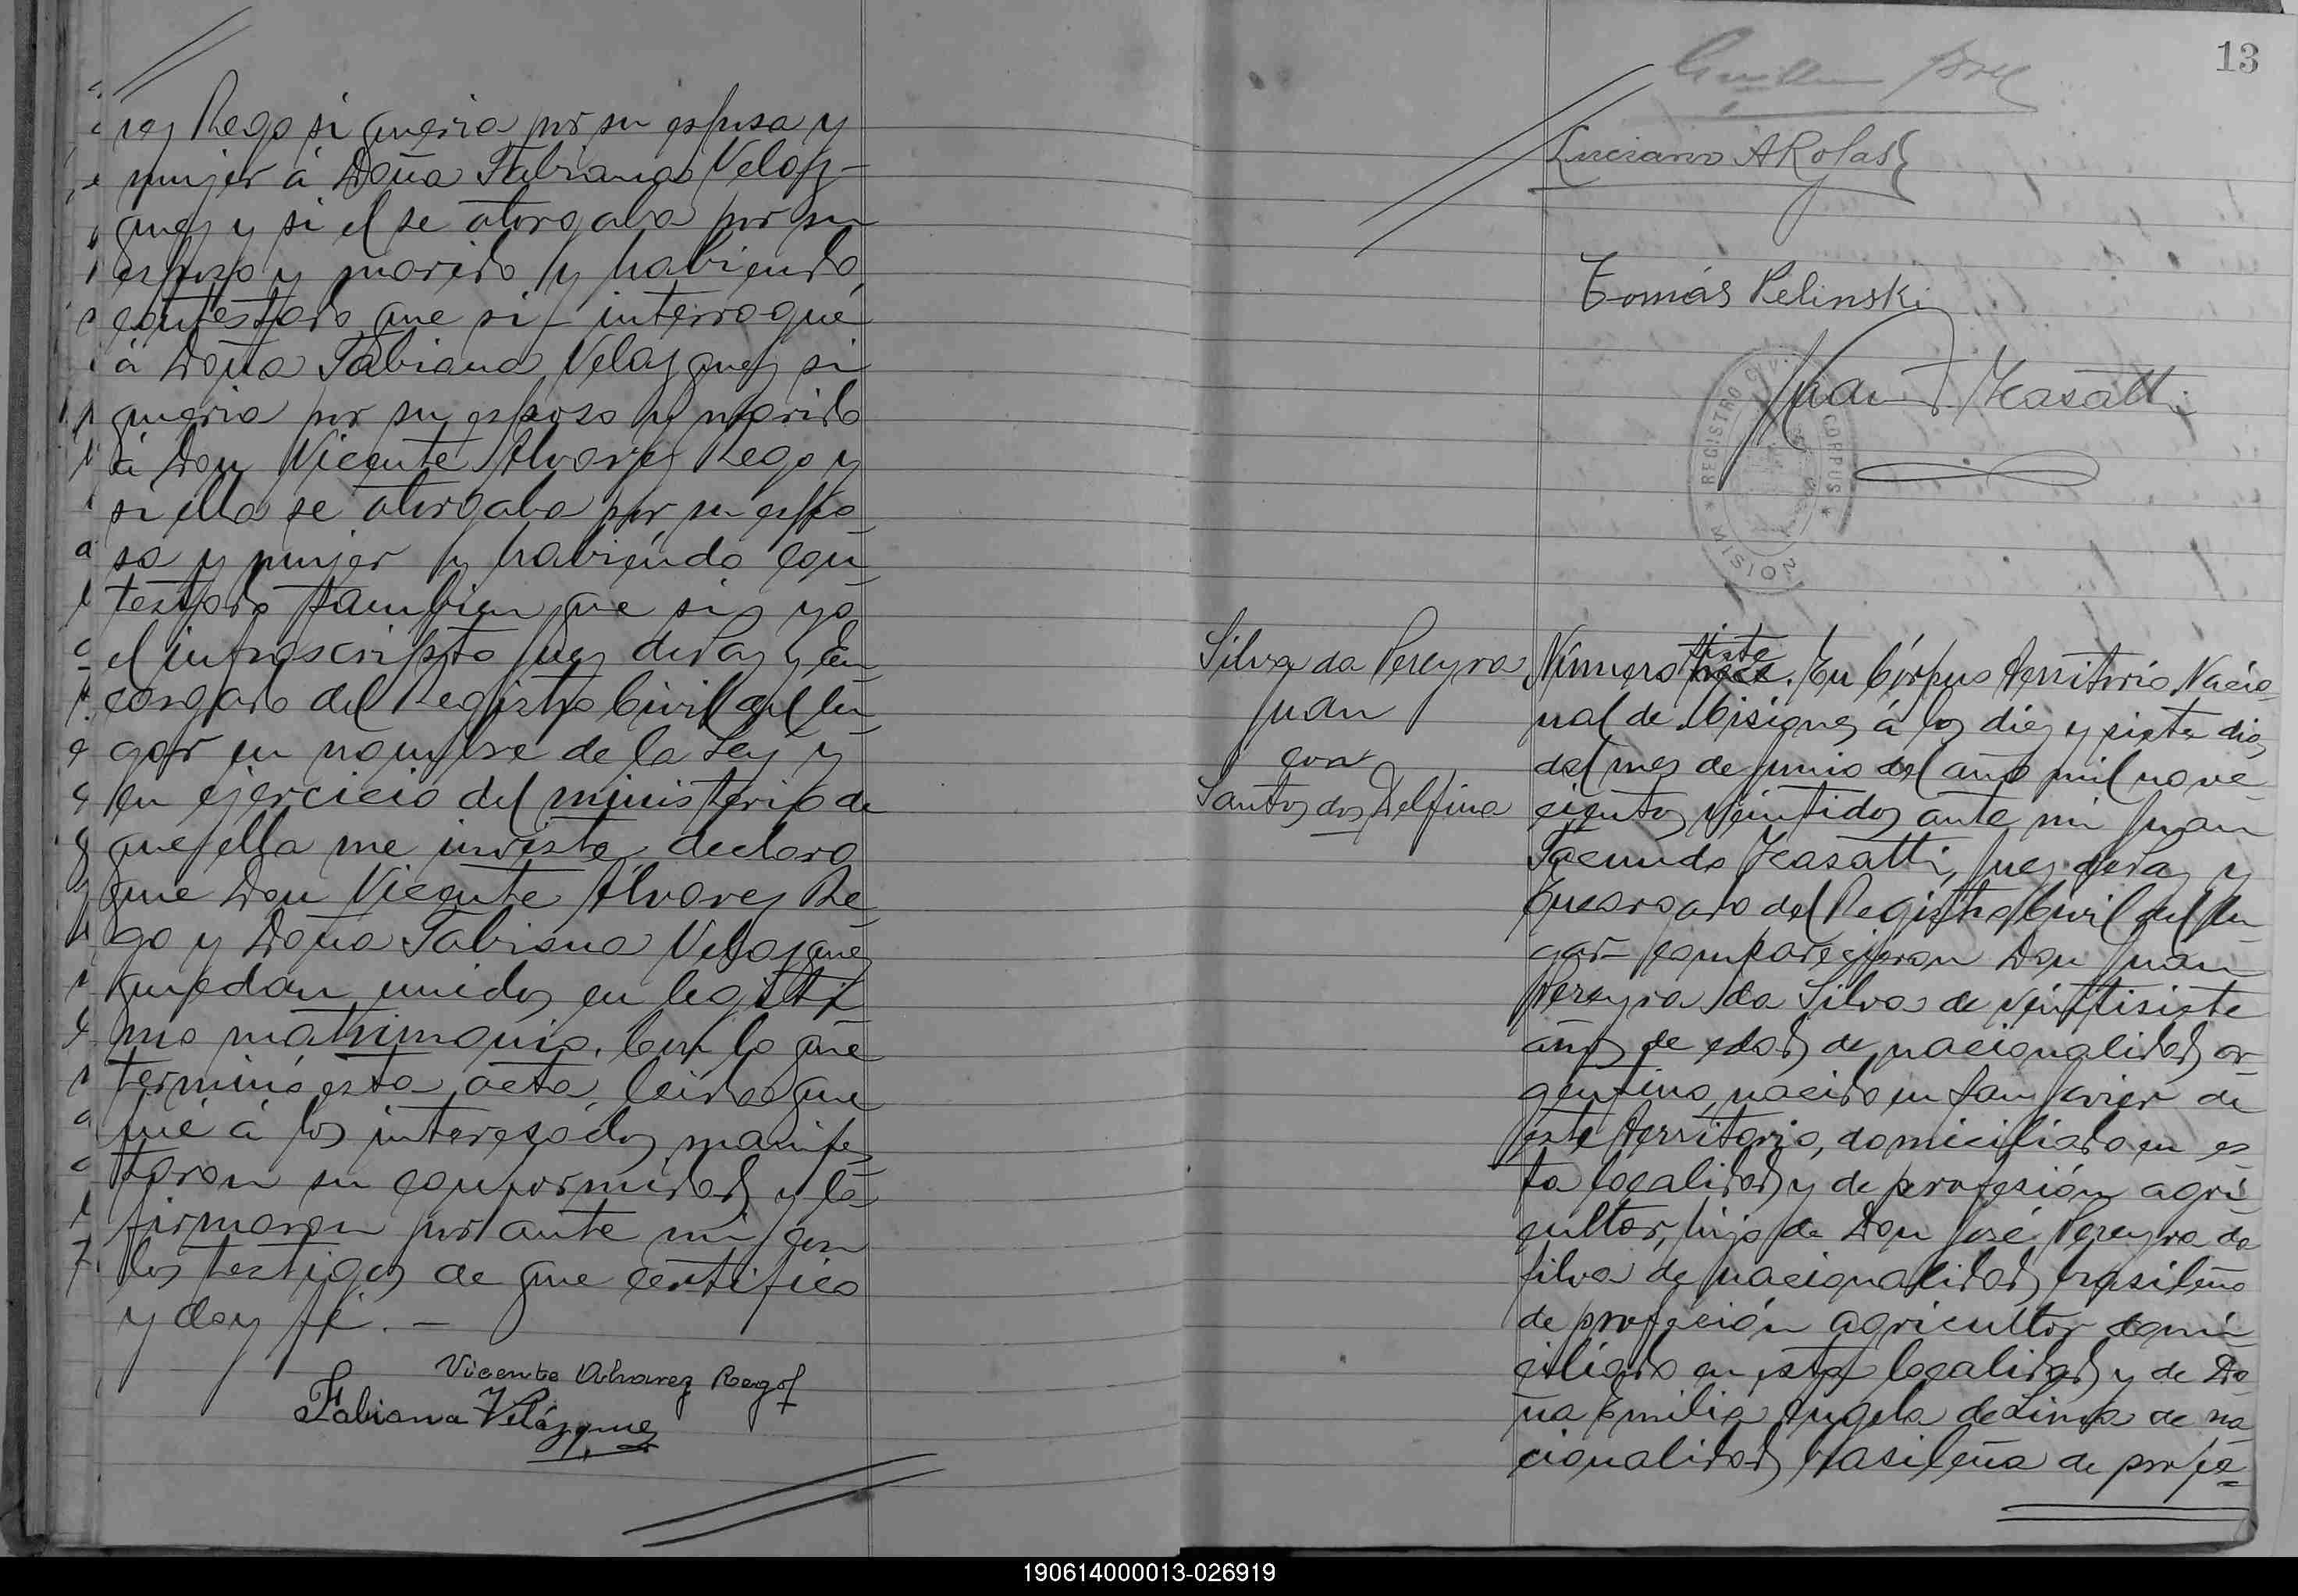 rez Rego si queria por su esposa y
mujer á Doña Fabiana Velaz-
quez y si el se otorgaba por su
esposo y marido y habiendo
contestado que si – interrogué
á Doña Fabiana Velazquez si
queria por su esposo y marido
á Don Vicente Alvarez Rego y
si ella se otorgaba por su espo
sa y mujer y habiéndo con
testado tambien que si, yo
el infrascripto Juez de Paz y En
cargado del Registro Civil del lu
gar en nombre de la Ley y
en ejercicio del ministerio de
que ella me inviste declaro
que Don Vicente Alvarez Re
go y Doña Fabiana Velazquez
quedan unidos en legíti
mo matrimonio. Con lo que
terminó esta acta, leida que
fué á los interesados manifes
taron su conformidad y la
firmaron por ante mi con
los testigos de que certifico
y doy fé. –
Vicente Alvarez Rego
Fabiana Velázquez
13
Luciano A Rojas
Tomás Pelinski
Juan F. Icasatti
REGISTRO CIVIL CORPUS
MISIONES
Silva da Pereyra
Juan
con
Santos dos Delfina
Número siete. En Córpus Territorio Nacio-
nal de Misiones á los diez y siete dias
del mes de Junio del año mil nove-
cientos veintidos ante mi Juan
Facundo Icasatti, Juez de Paz y
Encargado del Registro Civil del lu-
gar comparecieron Don Juan
Pereyra da Silva de veintisiete
años de edad, de nacionalidad ar-
gentina, nacido en San Javier de
este Territorio, domiciliado en es-
ta localidad y de profesión agri-
cultor, hijo de Don José Pereyra da
Silva de nacionalidad brasileña
de profeción agricultor domi-
ciliado en esta localidad y de Do-
ña Emilia Angela de Lima de na
cionalidad brasileña de profe-